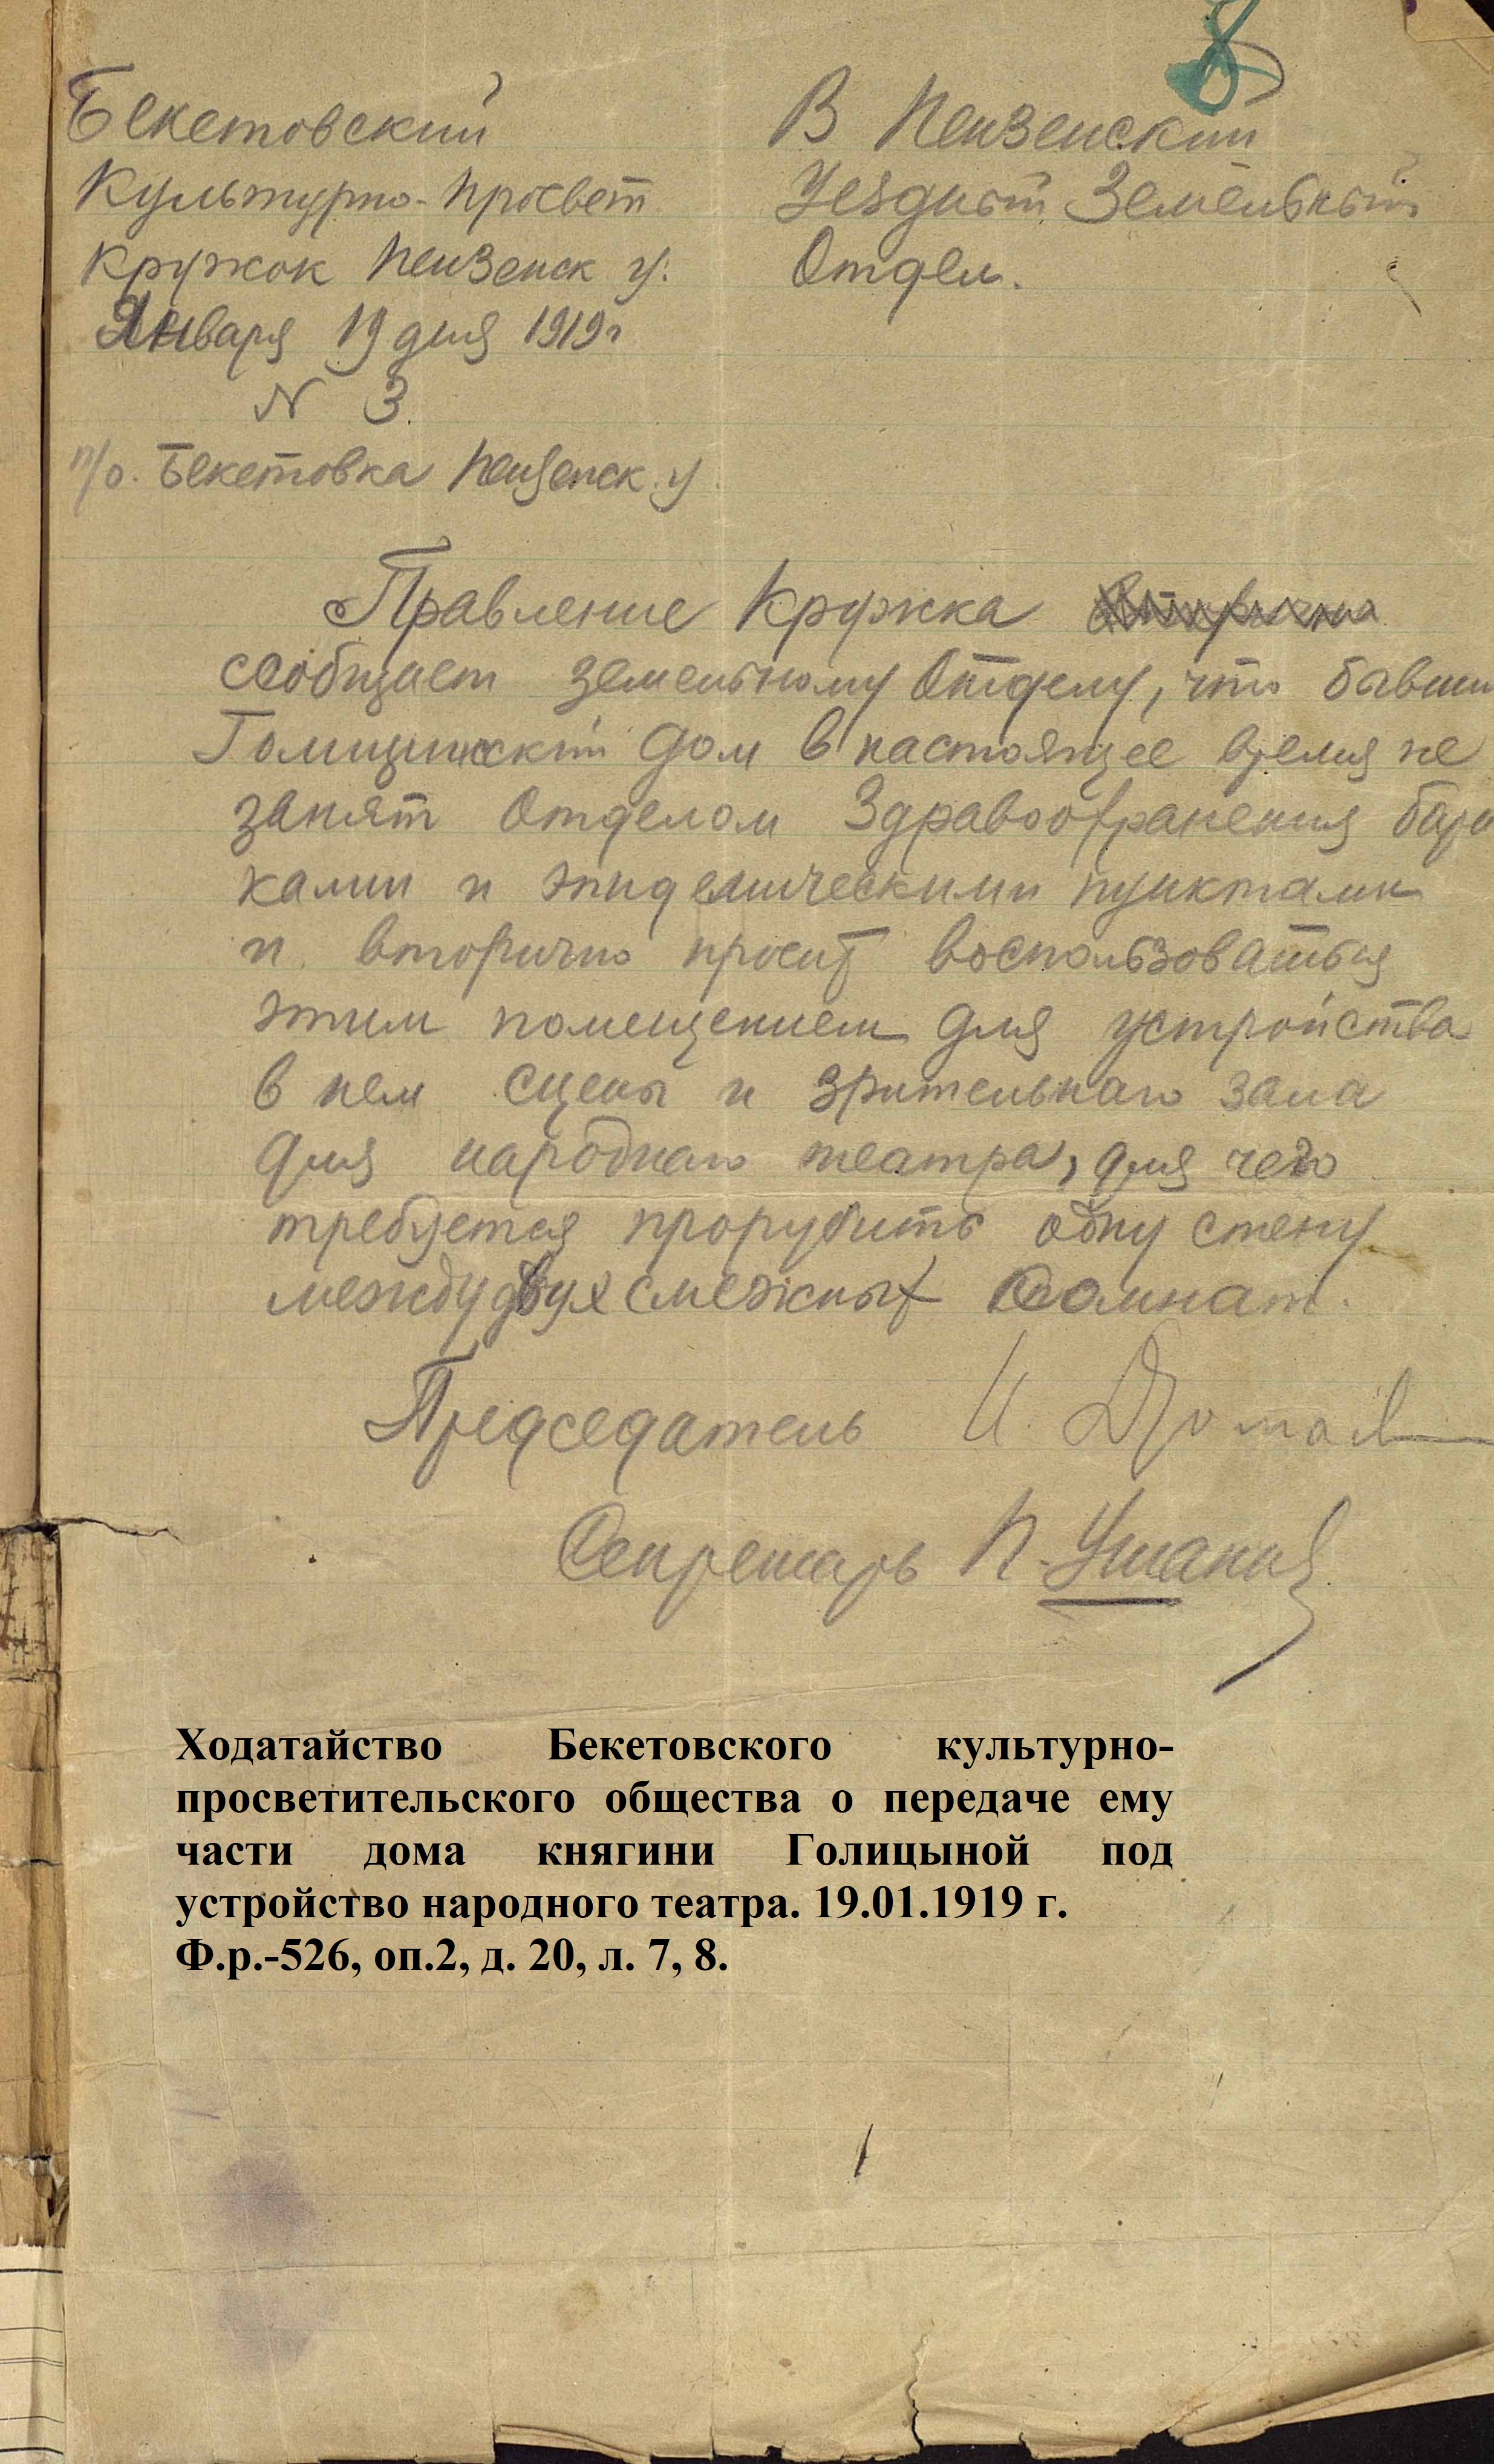 8
Бекетовский
Культурно-просвет
кружок Пензенск у.
Января 19 дня 1919 г
N 3.
п/о. Бекетовка Пензенск. у.
В Пензенский
Уездный Земельный
Отдел.
Правление Кружка
сообщает земельному Отделу, что бывши
Голицинский дом в настоящее время не
занят Отделом Здравоохранения бара
ками и эпидемическими пунктами
и вторично просит воспользоваться
этим помещением для устройства
в нем сцены и зрительнаго зала
для народнаго театра, для чего
требуется прорубить одну стену
между двух смежных комнат.
Председатель И.
Секретарь П. Ушаков
Ходатайство Бекетовского культурно-
просветительского общества о передаче ему
части дома княгини Голицыной под
устройство народного театра. 19.01.1919 г.
Ф.р.-526, оп.2, д. 20, л. 7, 8.